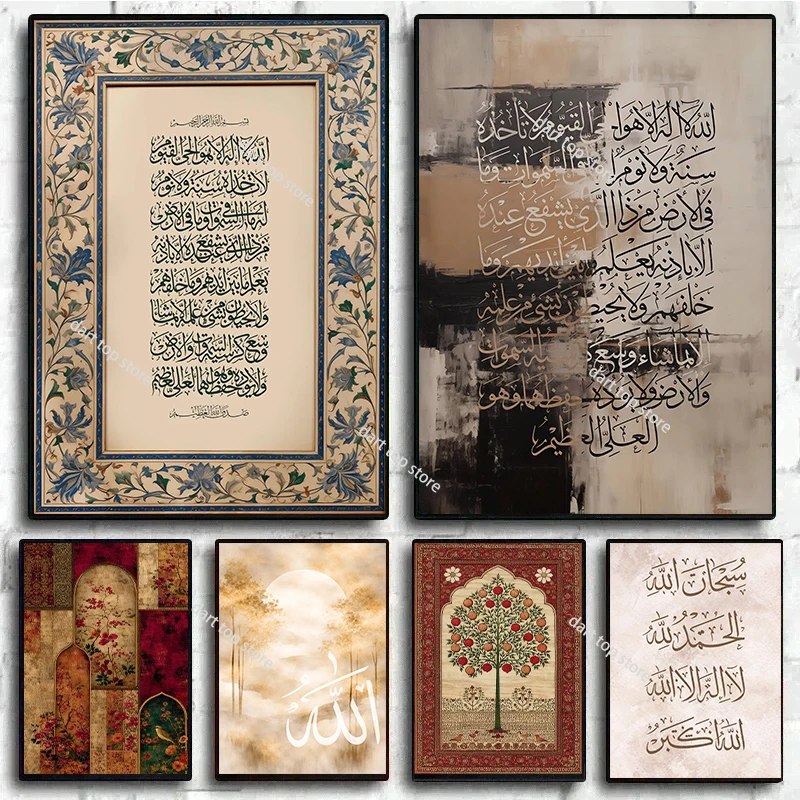 بسم الله الرحمن الرحيم
الله لا اله الا هو الحي القيوم
لا تاخذه سنة ولا نوم
له ما في السموات وما في الارض
من ذا الذي يشفع عنده الا باذنه
يعلم ما بين ايديهم وما خلفهم
ولا يحيطون بشيء من علمه الا بما شاء
وسع كرسيه السموات والارض
ولا يؤده حفظهما وهو العلي العظيم
صدق الله العظيم
dart top store
dart top store
dart top store
الله لا إله إلا هو الحي القيوم لا تأخذه
سنة ولا نوم السموات وما
في الأرض من ذا الذي يشفع عنده
إلا بإذنه يعلم أيديهم وما
خلفهم ولا يحيطون بشيء من علمه
إلا بما شاء وسع السموات
والأرض ولا يؤده حفظهما وهو
العلي العظيم
dart top store
dart top store
dart top store
الله
dart top store
سبحان الله
الحمد لله
لا إله إلا الله
الله أكبر